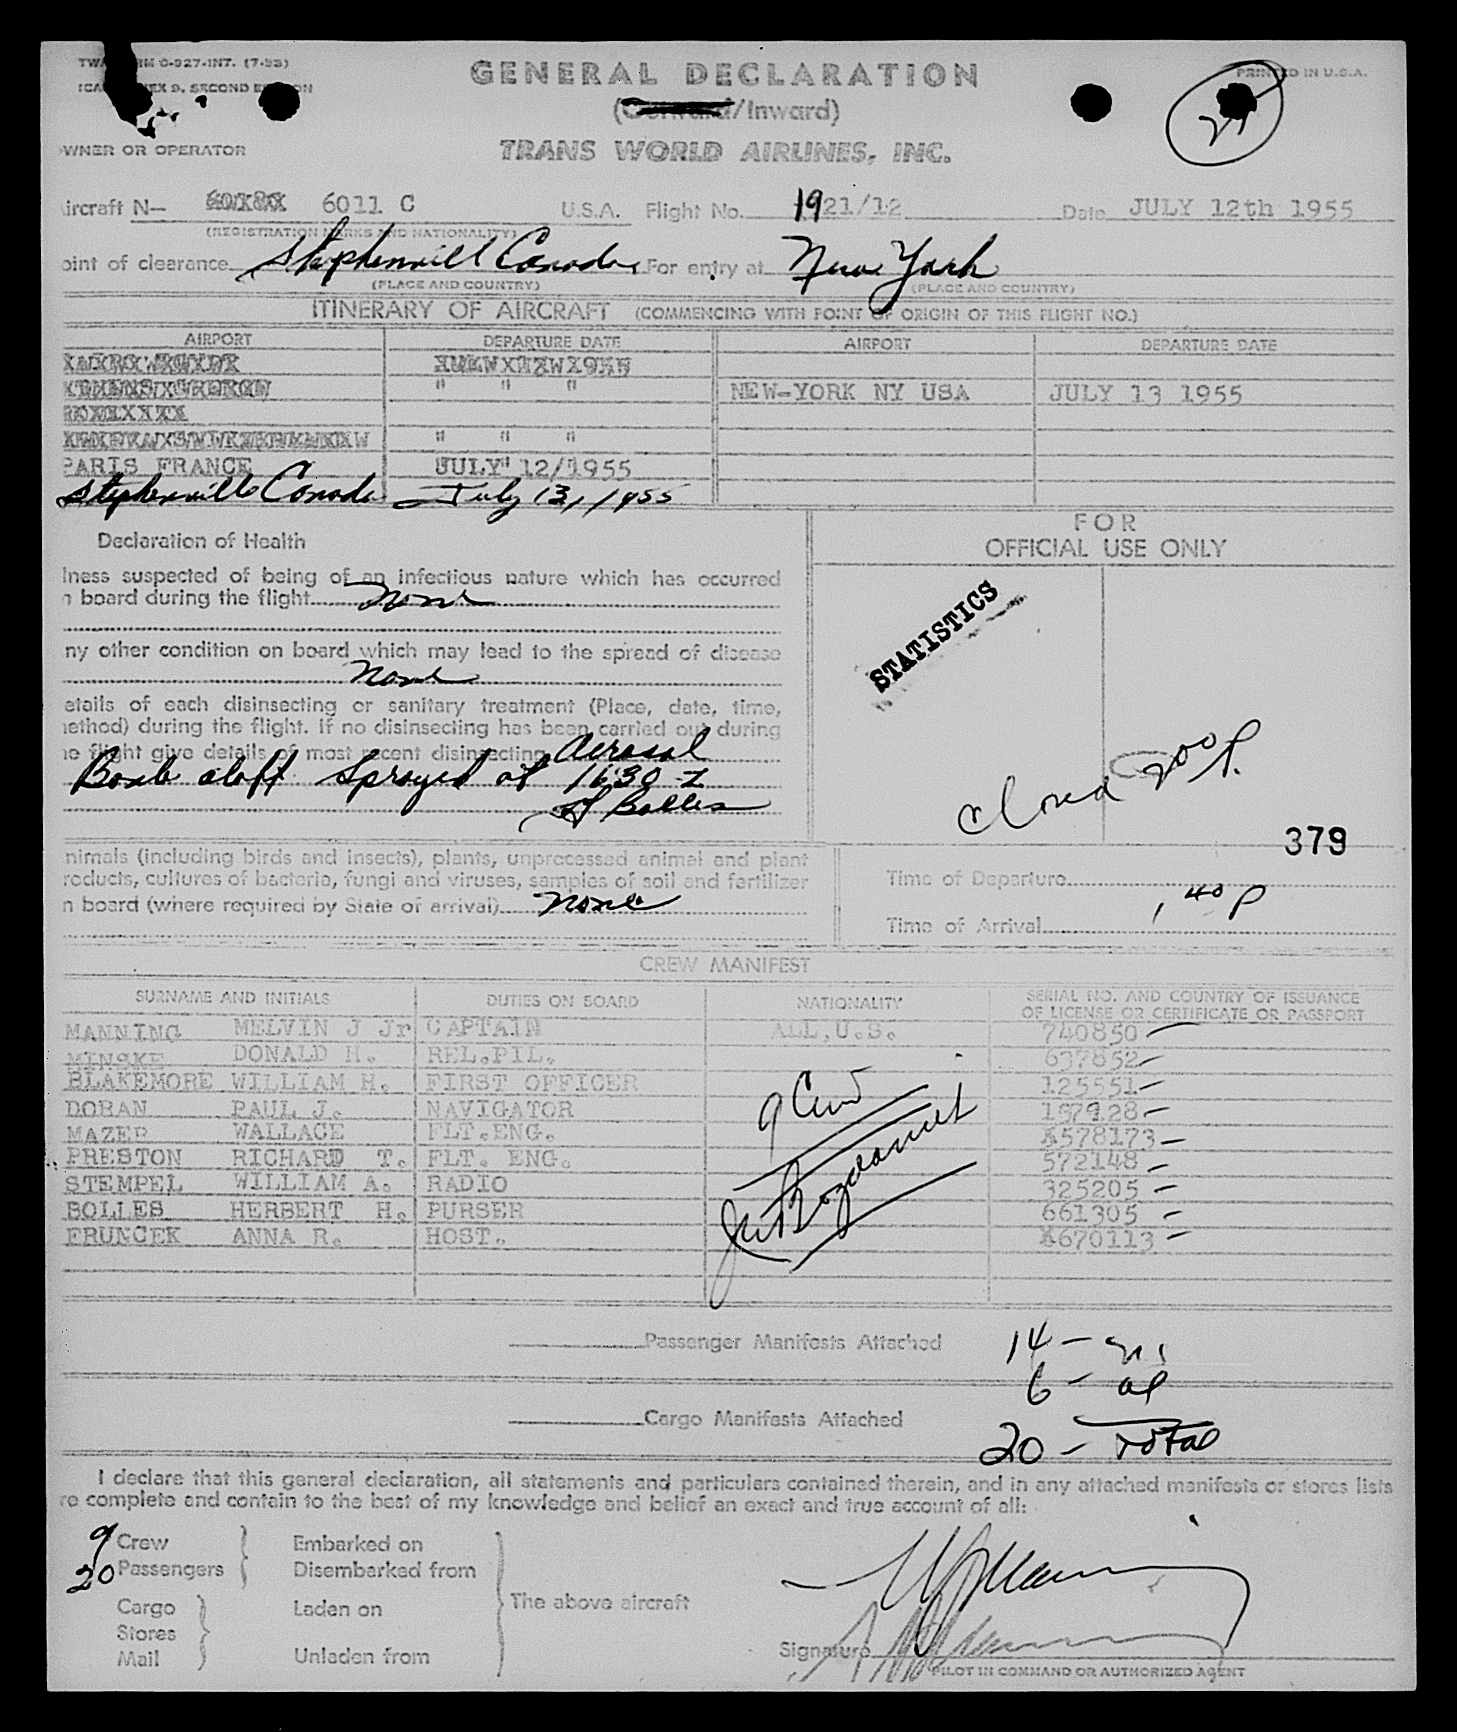 TWA FORM O-927-INT. (7-53)
GENERAL DECLARATION
PRINTED IN U.S.A.
ICAO ANNEX 9, SECOND EDITION
(Outward/Inward)
OWNER OR OPERATOR
TRANS WORLD AIRLINES, INC.
ircraft N— 6011 C U.S.A. Flight No. 1921/12 Date JULY 12th 1955
(REGISTRATION MARKS AND NATIONALITY)
oint of clearance Stephenvill Canada For entry at New York
(PLACE AND COUNTRY) (PLACE AND COUNTRY)
ITINERARY OF AIRCRAFT (COMMENCING WITH POINT OF ORIGIN OF THIS FLIGHT NO.)
AIRPORT DEPARTURE DATE AIRPORT DEPARTURE DATE
" " " NEW-YORK NY USA JULY 13 1955
" " "
PARIS FRANCE JULY" 12/1955
Stephenville Canada July 13, 1955
FOR
OFFICIAL USE ONLY
Declaration of Health
lness suspected of being of an infectious nature which has occurred
n board during the flight None
ny other condition on board which may lead to the spread of disease
None
STATISTICS
etails of each disinsecting or sanitary treatment (Place, date, time,
ethod) during the flight. If no disinsecting has been carried out during
he flight give details of most recent disinsecting Aerosol
Bomb aloft Sprayed at 1630 Z
H Bolles
Closed 200 P.
379
nimals (including birds and insects), plants, unprocessed animal and plant
roducts, cultures of bacteria, fungi and viruses, samples of soil and fertilizer
n board (where required by State of arrival) None
Time of Departure
Time of Arrival 1 40 P
CREW MANIFEST
SURNAME AND INITIALS DUTIES ON BOARD NATIONALITY SERIAL NO. AND COUNTRY OF ISSUANCE
OF LICENSE OR CERTIFICATE OR PASSPORT
MANNING MELVIN J Jr CAPTAIN ALL,U.S. 740850
MINSKE DONALD H. REL.PIL. 637852
BLAKEMORE WILLIAM H. FIRST OFFICER 125551
DORAN PAUL J. NAVIGATOR 187928
MAZER WALLACE FLT.ENG. 578173
PRESTON RICHARD T. FLT. ENG. 572148
STEMPEL WILLIAM A. RADIO 325205
BOLLES HERBERT H. PURSER 661305
ERUNCEK ANNA R. HOST. 670113
9 Crew
Passenger Manifests Attached 14 —
6 — al
Cargo Manifests Attached
20 — Total
I declare that this general declaration, all statements and particulars contained therein, and in any attached manifests or stores lists
re complete and contain to the best of my knowledge and belief an exact and true account of all:
9 Crew Embarked on
20 Passengers Disembarked from
The above aircraft
Cargo Laden on
Stores
Mail Unladen from
Signature
PILOT IN COMMAND OR AUTHORIZED AGENT